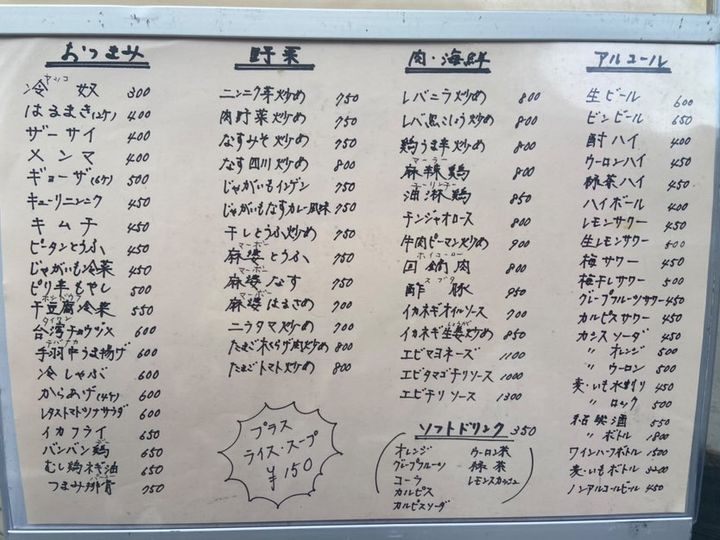 おつまみ
冷奴 ヤッコ 300
はるまき(2ケ) 400
ザーサイ 400
メンマ 400
ギョーザ(6ケ) 500
キューリニンニク 450
キムチ 450
ピータンとうふ 450
じゃがいも冷菜 450
ピリ辛もやし 500
干豆腐冷菜 550
台湾チョウヅメ タイワン 600
手羽中うま揚げ テバナカ 600
冷しゃぶ 600
からあげ(4ケ) 600
レタストマトツナサラダ 600
イカフライ 650
バンバン鶏 650
むし鶏ネギ油 650
つまみ排骨 750
野菜
ニンニク芽炒め 750
肉野菜炒め 750
なすみそ炒め 750
なす四川炒め 800
じゃがいもインゲン 750
じゃがいもなすカレー風味 750
干しとうふ炒め 750
麻婆とうふ マーボー 750
麻婆なす マーボー 750
麻婆はるさめ マーボー 700
ニラタマ炒め 700
たまご木くらげ肉炒め 800
たまごトマト炒め 800
プラス
ライス・スープ
¥150
肉・海鮮
レバニラ炒め 800
レバ黒こしょう炒め 800
鶏うま辛炒め 800
麻辣鶏 マーラー 800
油淋鶏 ユーリンチー 850
チンジャオロース 800
牛肉ピーマン炒め 900
回鍋肉 ホイコーロー 800
酢豚 スブタ 950
イカネギオイルソース 700
イカネギ生姜炒め 850
エビマヨネーズ 1100
エビタマゴチリソース 1000
エビチリソース 1300
ソフトドリンク 350
オレンジ ウーロン茶
グレープフルーツ 緑茶
コーラ レモンスカッシュ
カルピス
カルピスソーダ
アルコール
生ビール 600
ビンビール 650
酎ハイ 400
ウーロンハイ 450
緑茶ハイ 450
ハイボール 400
レモンサワー 450
生レモンサワー 500
梅サワー 450
梅干しサワー 500
グレープフルーツサワー 450
カルピスサワー 450
カシスソーダ 450
〃 オレンジ 500
〃 ウーロン 500
麦・いも水割り 450
〃 ロック 500
紹興酒 550
〃 ボトル 1800
ワインハーフボトル 1500
麦・いもボトル 3200
ノンアルコールビール 450